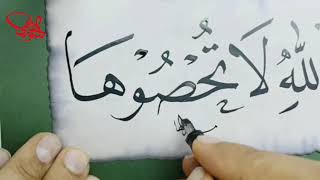 اللّهِ لَا تُحْصُوْهَا